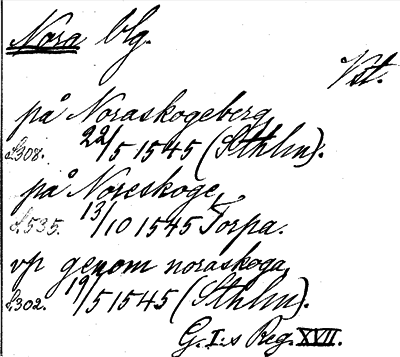 Nora blg.
Vst.
på Noraskogeberg
s. 308. 22/5 1545 (Sthlm).
på Noreskoge
s. 535. 13/10 1545 Torpa.
vp genom noraskoga
s. 302. 19/5 1545 (Sthlm).
G. I:s Reg. XVII.